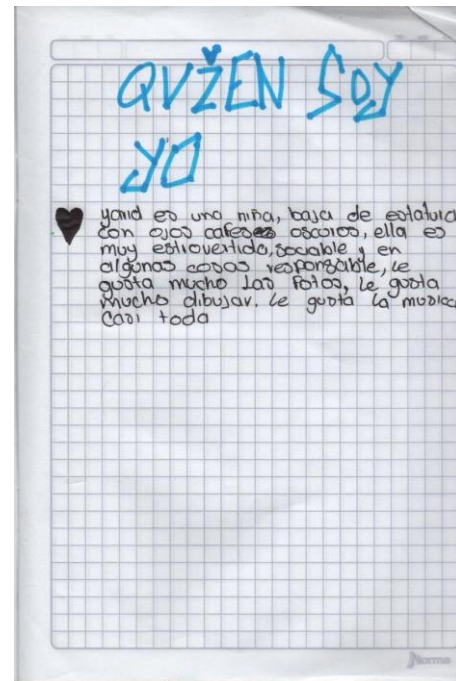 QUIEN SOY
YO
yand es una niña, baja de estatura
con ojos cafes oscuros, ella es
muy estrovertida, sociable y en
algunas cosas responsable, le
gusta mucho las fotos, le gusta
mucho dibujar. le gusta la musica
casi toda
Norma